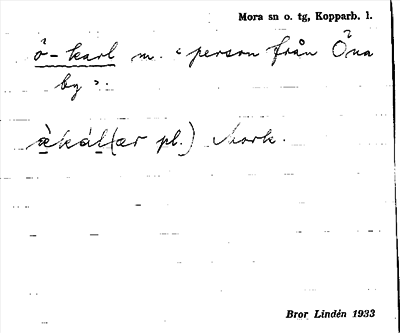 Mora sn o. tg, Kopparb. l.
ö-karl m. "person från Öna
by".
ä̀kál(ær pl.) Mork.
Bror Lindén 1933